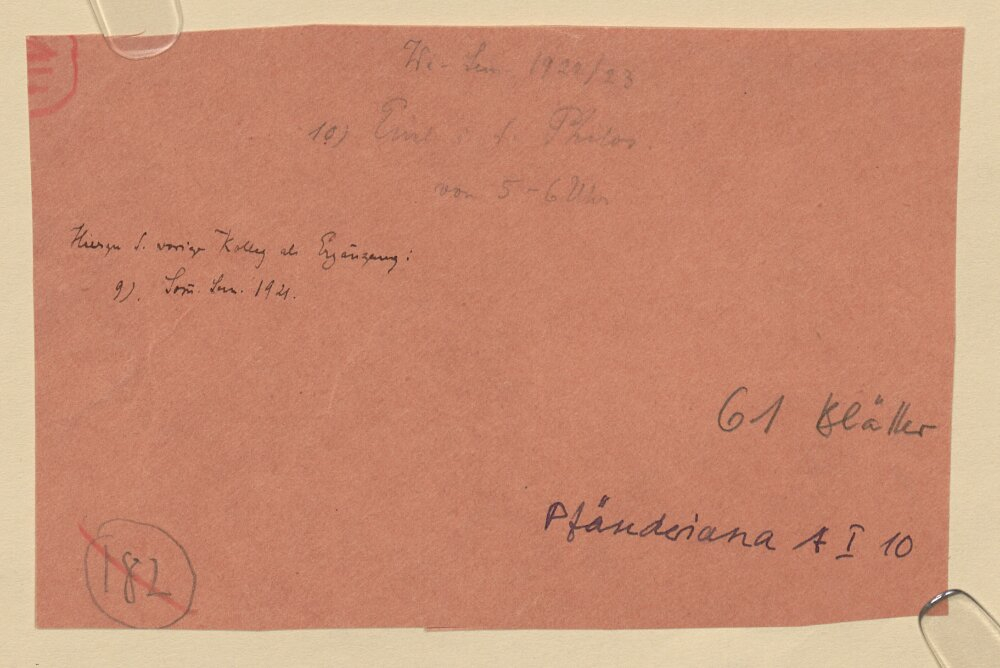 Wi-Sem. 1922/23
10) Einl. i. d. Philos.
von 5-6 Uhr
Hierzu d. vorige Kolleg als Ergänzung:
9). Som. Sem. 1921.
61 Blätter
Pfänderiana A I 10
182